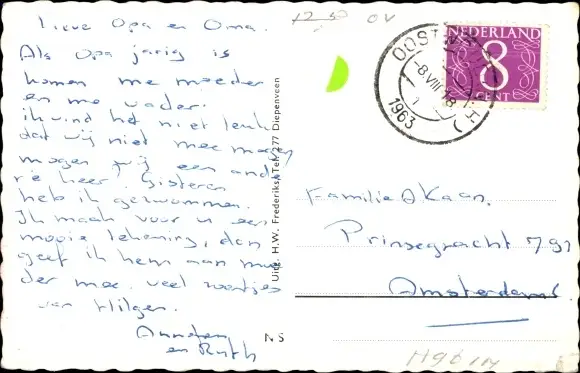 Lieve Opa en Oma.
Als Opa jarig is
komen me moeder
en me vader.
ik vind het niet leuk
dat wij niet mee mogen
mogen wij een ande
re keer! Gisteren
heb ik gezwommen.
Ik maak voor u een
mooie tekening, dan
geef ik hem aan moe
der mee. veel
van
en Ruth
Uitg. H.W. Frederiks, Tel. 277 Diepenveen
N S
12.50
OV
OOST
-8 VIII
1963
NEDERLAND
8
CENT
Familie A Kaan.
Prinsegracht 791
Amsterdam